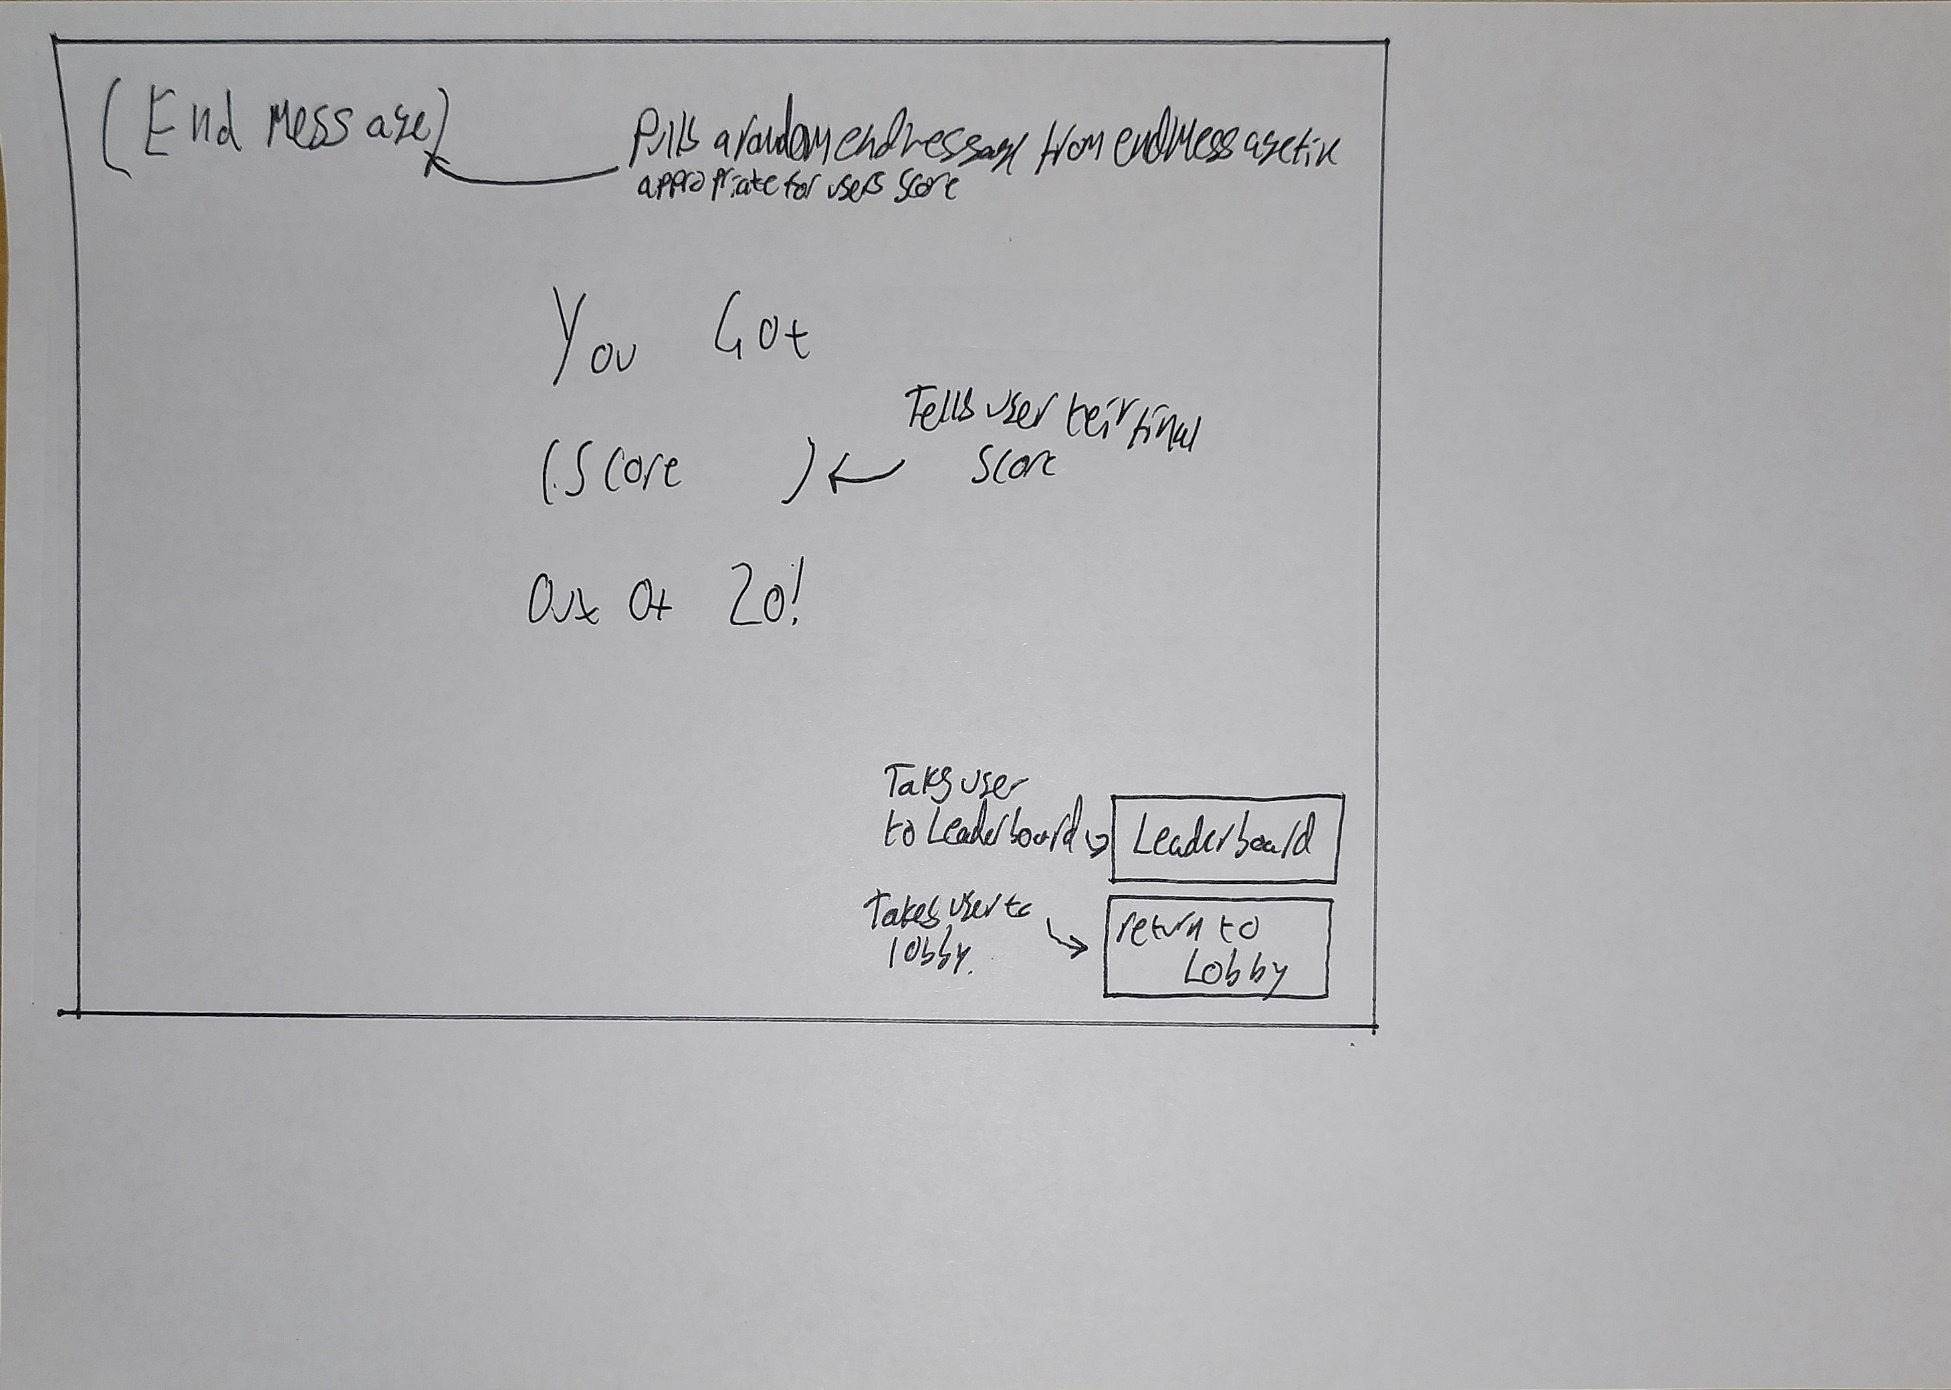 (End message)
Pulls a random endmessage from endmessagefile
appropriate for users score
You Got
Tells user teir final
score
(Score )
Out Of 20!
Taks user
to Leaderboard
Leaderboard
Takes user to
lobby.
return to
Lobby